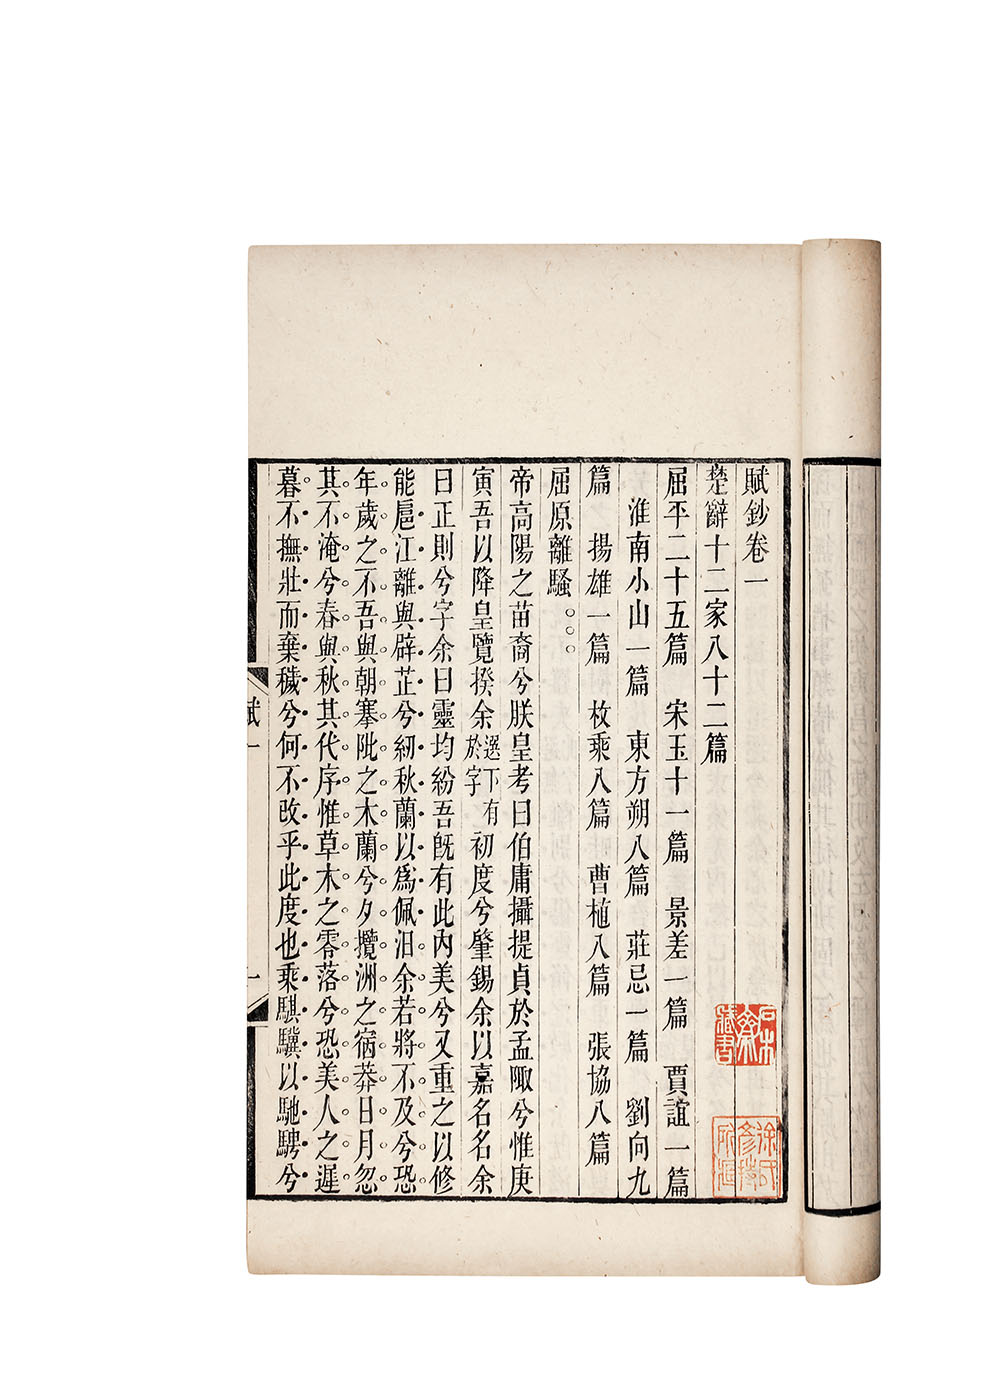 賦鈔卷一
楚辭十二家八十二篇
屈平二十五篇 宋玉十一篇 景差一篇 賈誼一篇
淮南小山一篇 東方朔八篇 莊忌一篇 劉向九
篇 揚雄一篇 枚乘八篇 曹植八篇 張協八篇
屈原離騷。。。
帝高陽之苗裔兮朕皇考曰伯庸攝提貞於孟陬兮惟庚
寅吾以降皇覽揆余選下有於字初度兮肇錫余以嘉名名余
曰正則兮字余曰靈均紛吾旣有此內美兮又重之以修
能扈江離與辟芷兮紉秋蘭以爲佩汨余若將不及兮恐
年歲之不吾與朝搴阰之木蘭兮夕攬洲之宿莽日月忽
其不淹兮春與秋其代序惟草木之零落兮恐美人之遲
暮不撫壯而棄穢兮何不改乎此度也乘騏驥以馳騁兮
賦一
一